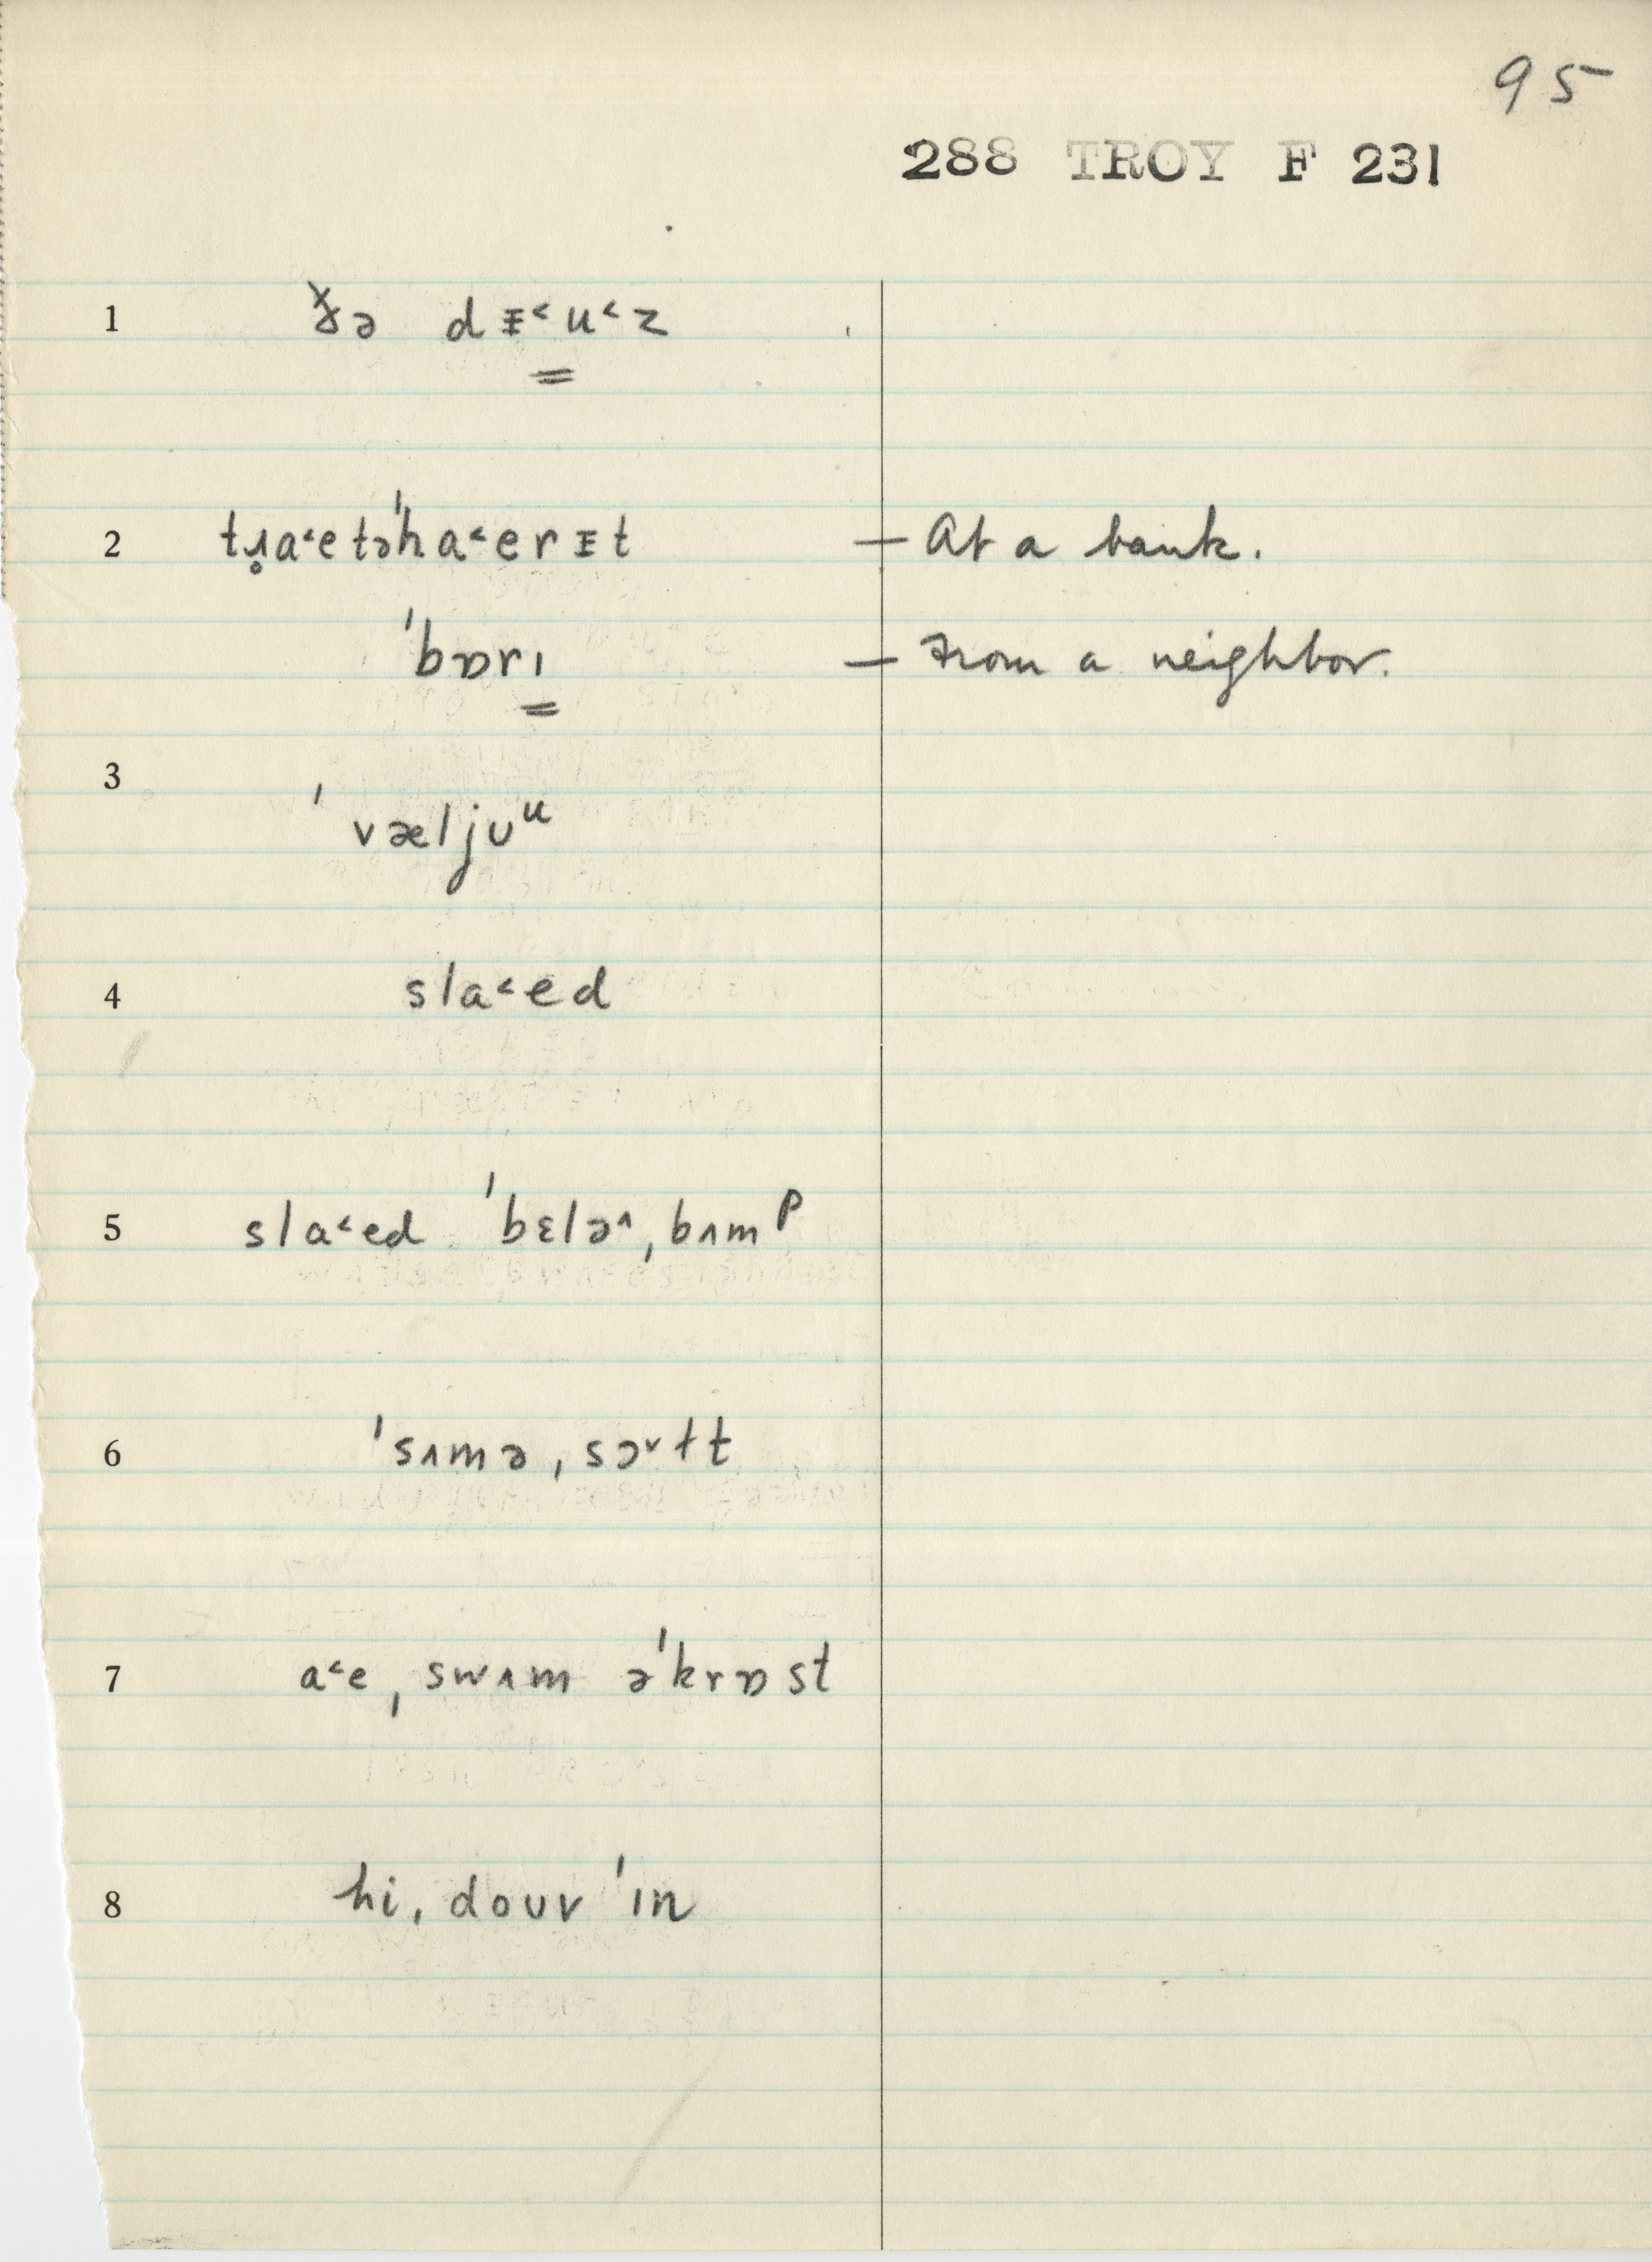 95
288 TROY F 231
1 ðə dᵻ˂u˂z
2 tɹ̥a˂etə'ha˂erᵻt — At a bank.
'bɒrɪ — From a neighbor.
3 'væljʊᵘ
4 sla˂ed
5 sla˂ed 'bɛlə˄ˌbʌmᵖ
6 'sʌməˌsɔ˅ɫt
7 a˂eˌswʌm ə'krɒst
8 hiˌdouv 'ɪn